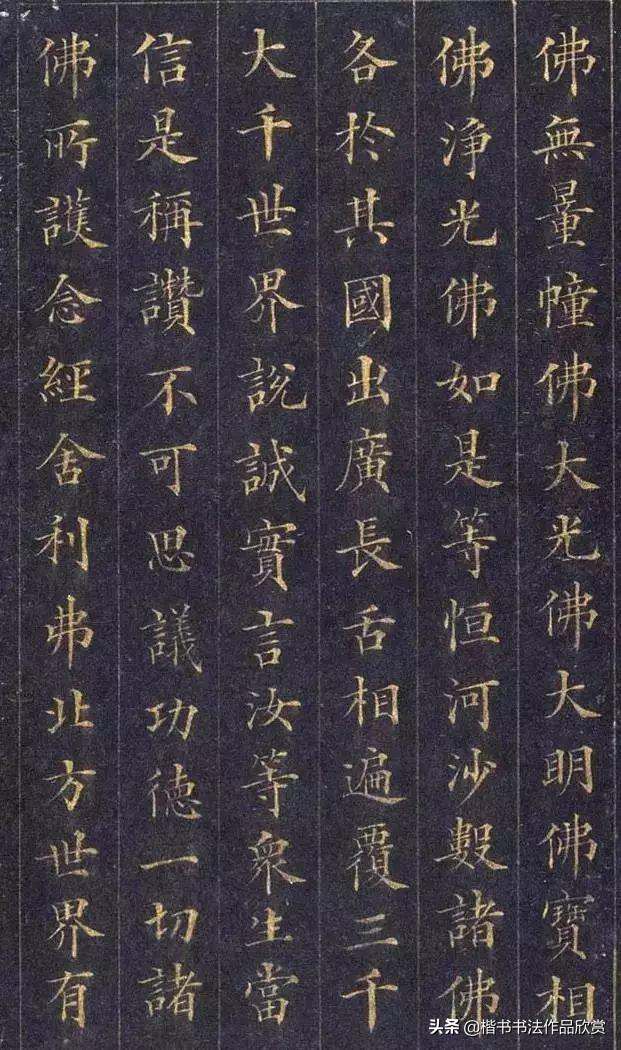 佛無量幢佛大光佛大明佛寶相
佛淨光佛如是等恒河沙數諸佛
各於其國出廣長舌相遍覆三千
大千世界說誠實言汝等眾生當
信是稱讚不可思議功德一切諸
佛所護念經舍利弗北方世界有
头条 @楷书书法作品欣赏